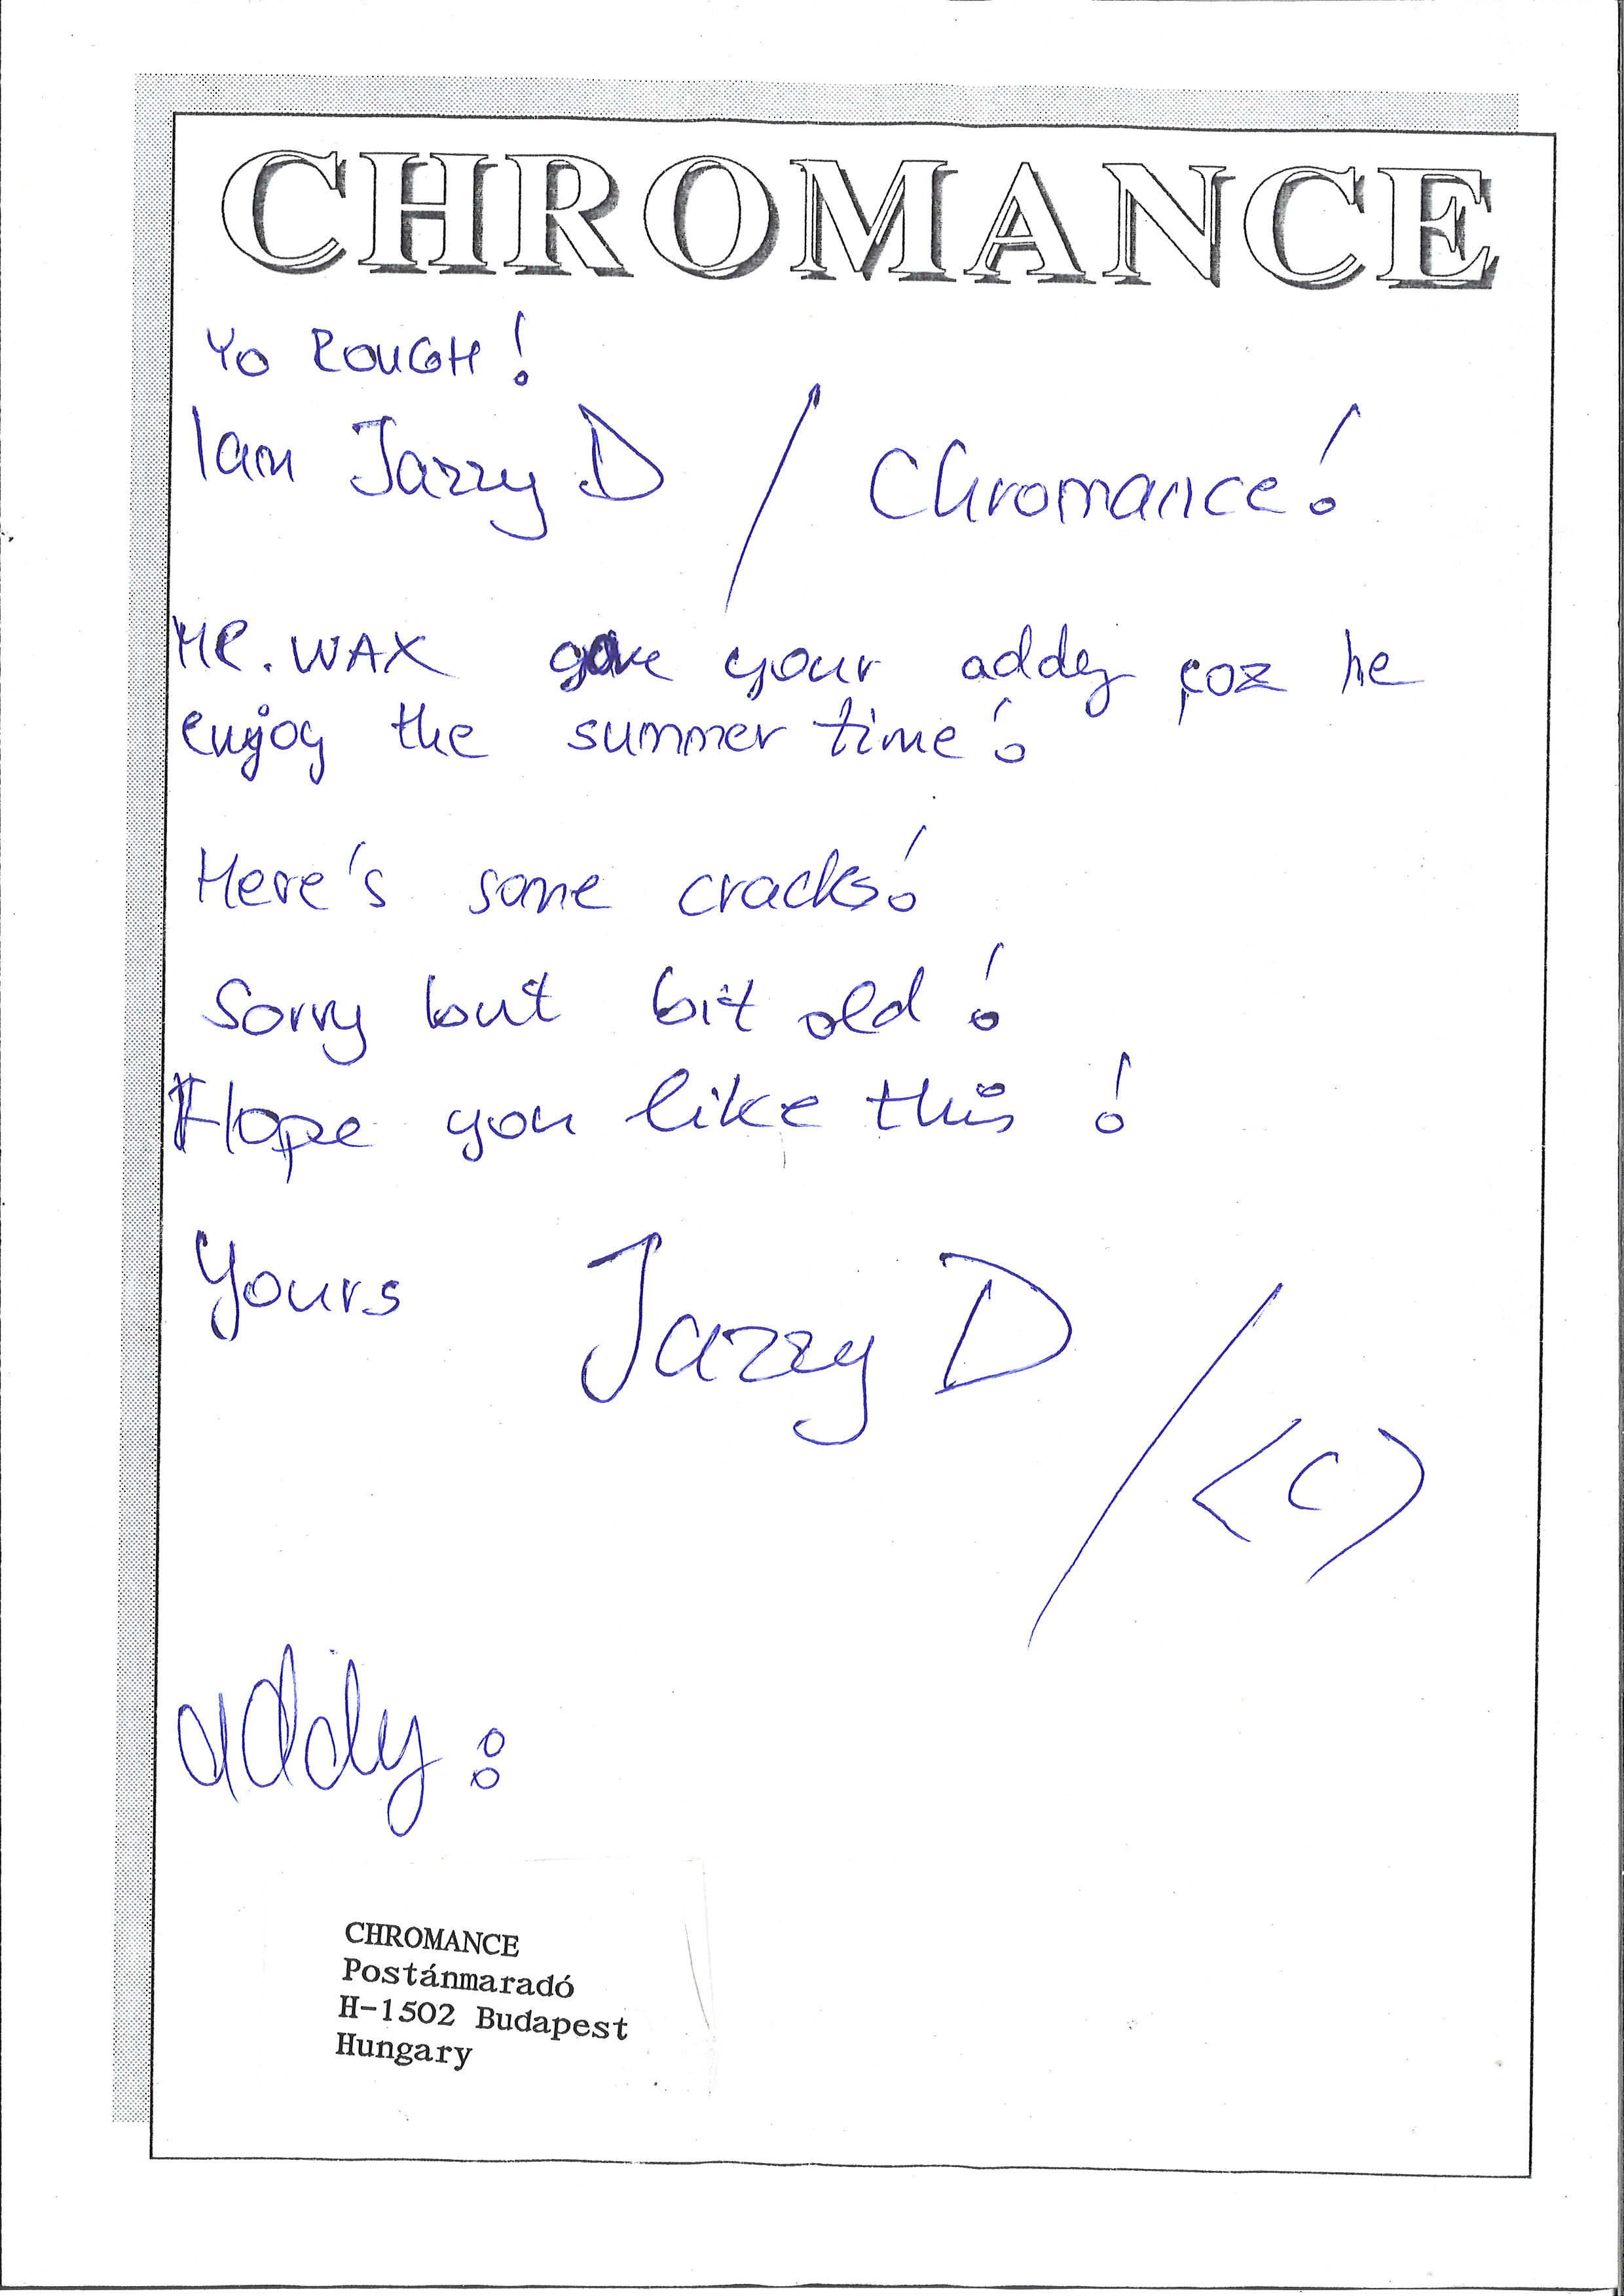 CHROMANCE
YO ROUGH!
I am Jazzy D / Chromance!
MR. WAX gave your addy coz he
enjoy the summer time!
Here's some cracks!
Sorry but bit old!
Hope you like this!
Yours Jazzy D / <c)
addy:
CHROMANCE
Postánmaradó
H-1502 Budapest
Hungary